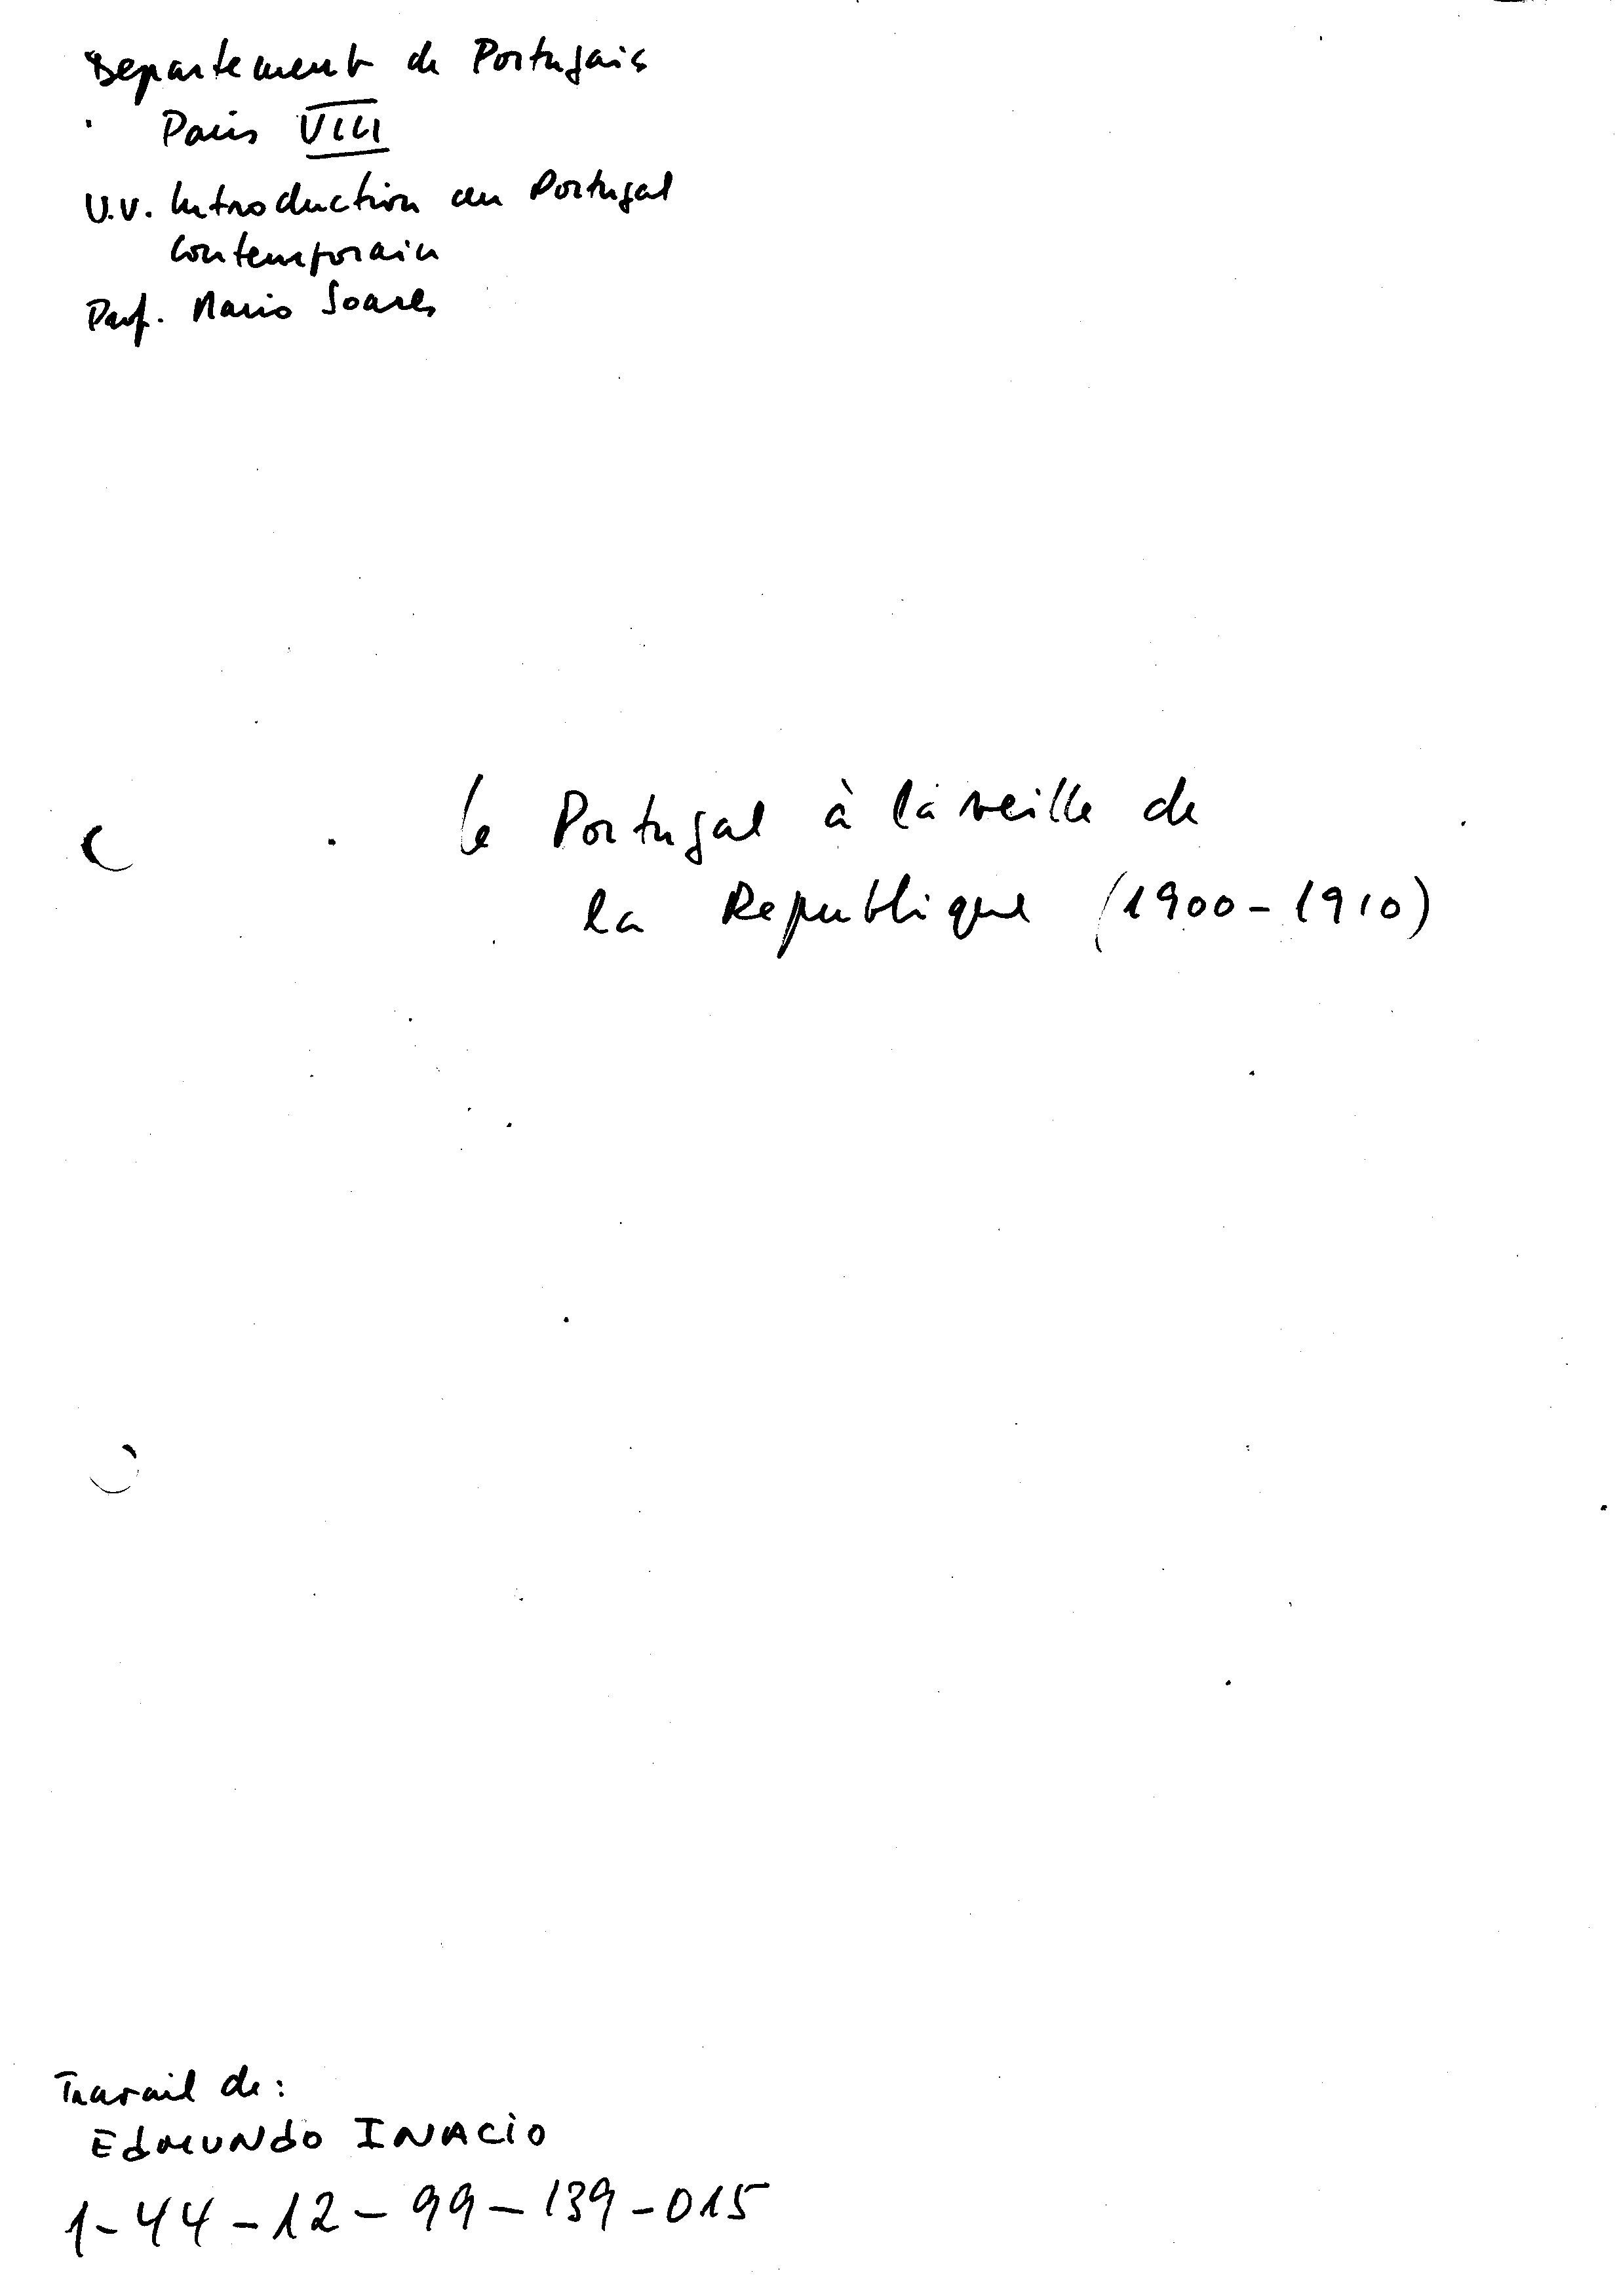 Departement de Portugais
Paris VIII
U.V. Introduction au Portugal
Contemporain
Prof. Mario Soares
le Portugal à la veille de
la Republique (1900-1910)
Travail de :
EDMUNDO INACIO
1-44-12-99-139-015